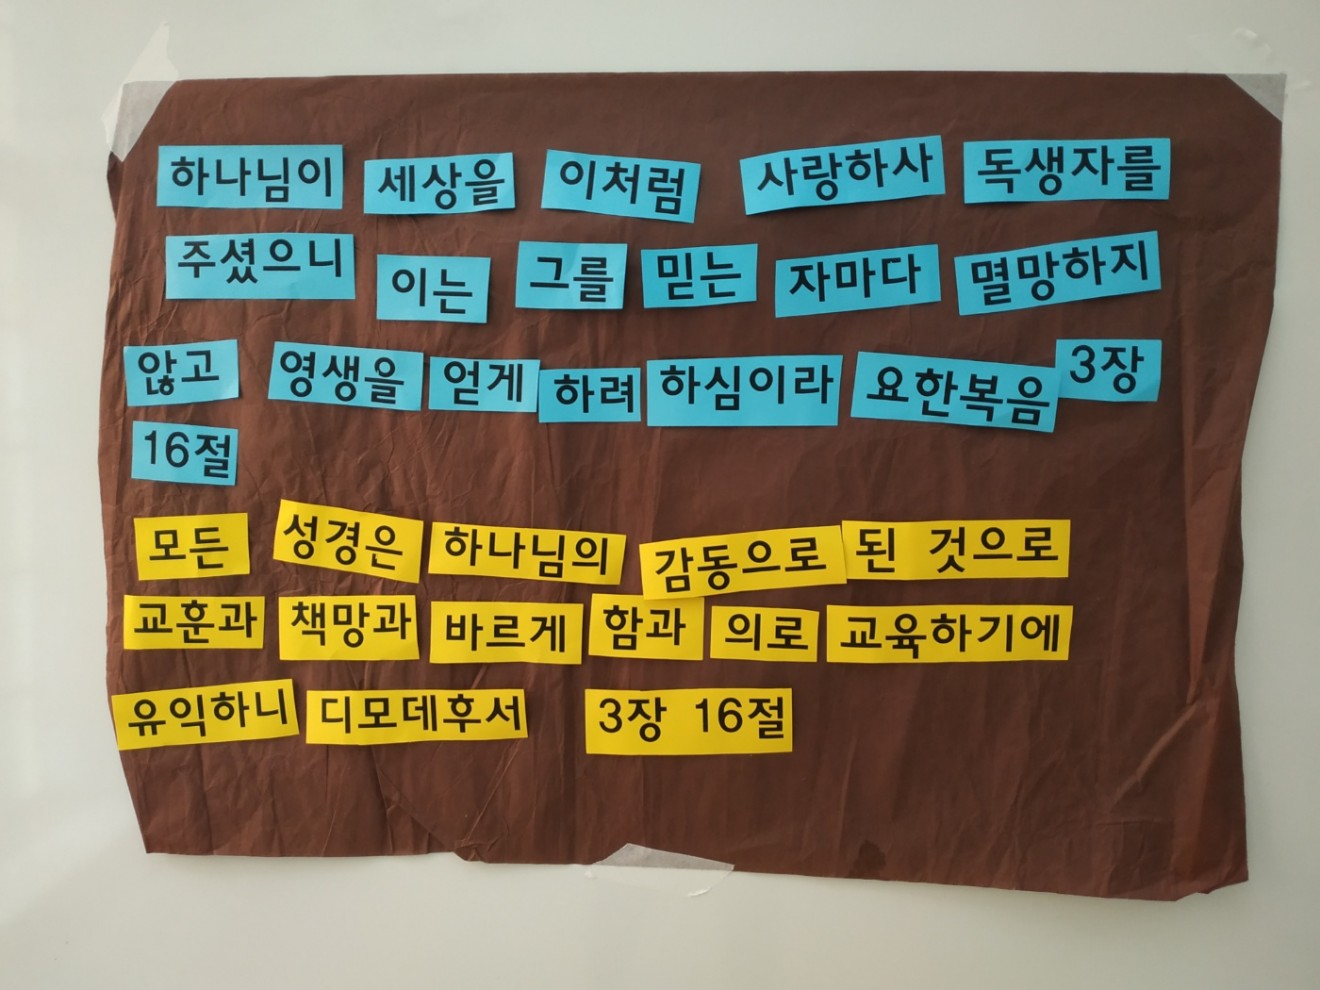 하나님이 세상을 이처럼 사랑하사 독생자를
주셨으니 이는 그를 믿는 자마다 멸망하지
않고 영생을 얻게 하려 하심이라 요한복음 3장
16절
모든 성경은 하나님의 감동으로 된 것으로
교훈과 책망과 바르게 함과 의로 교육하기에
유익하니 디모데후서 3장 16절